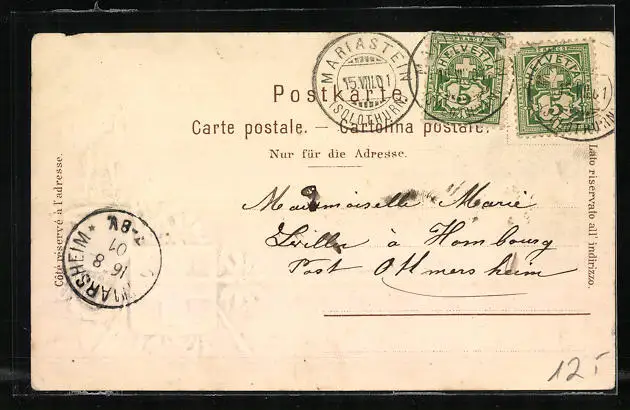 MARIASTEIN
15.VIII.01
(SOLOTHURN)
FRANCO
HELVETIA
5
FRANCO
HELVETIA
5
Postkarte
Carte postale. — Cartolina postale.
Nur für die Adresse.
Côté réservé à l'adresse.
Lato riservato all' indirizzo.
Mademoiselle Marie
à Hombourg
Post Ottmersheim
16 8
01
7-8V.
12 -